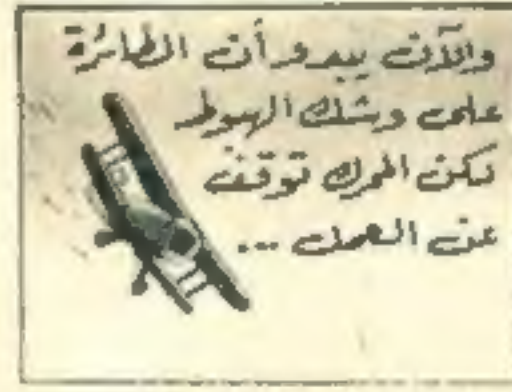 والآن يبدو أن الطائرة
على وشك الهبوط
لكن المحرك توقف
عن العمل ...